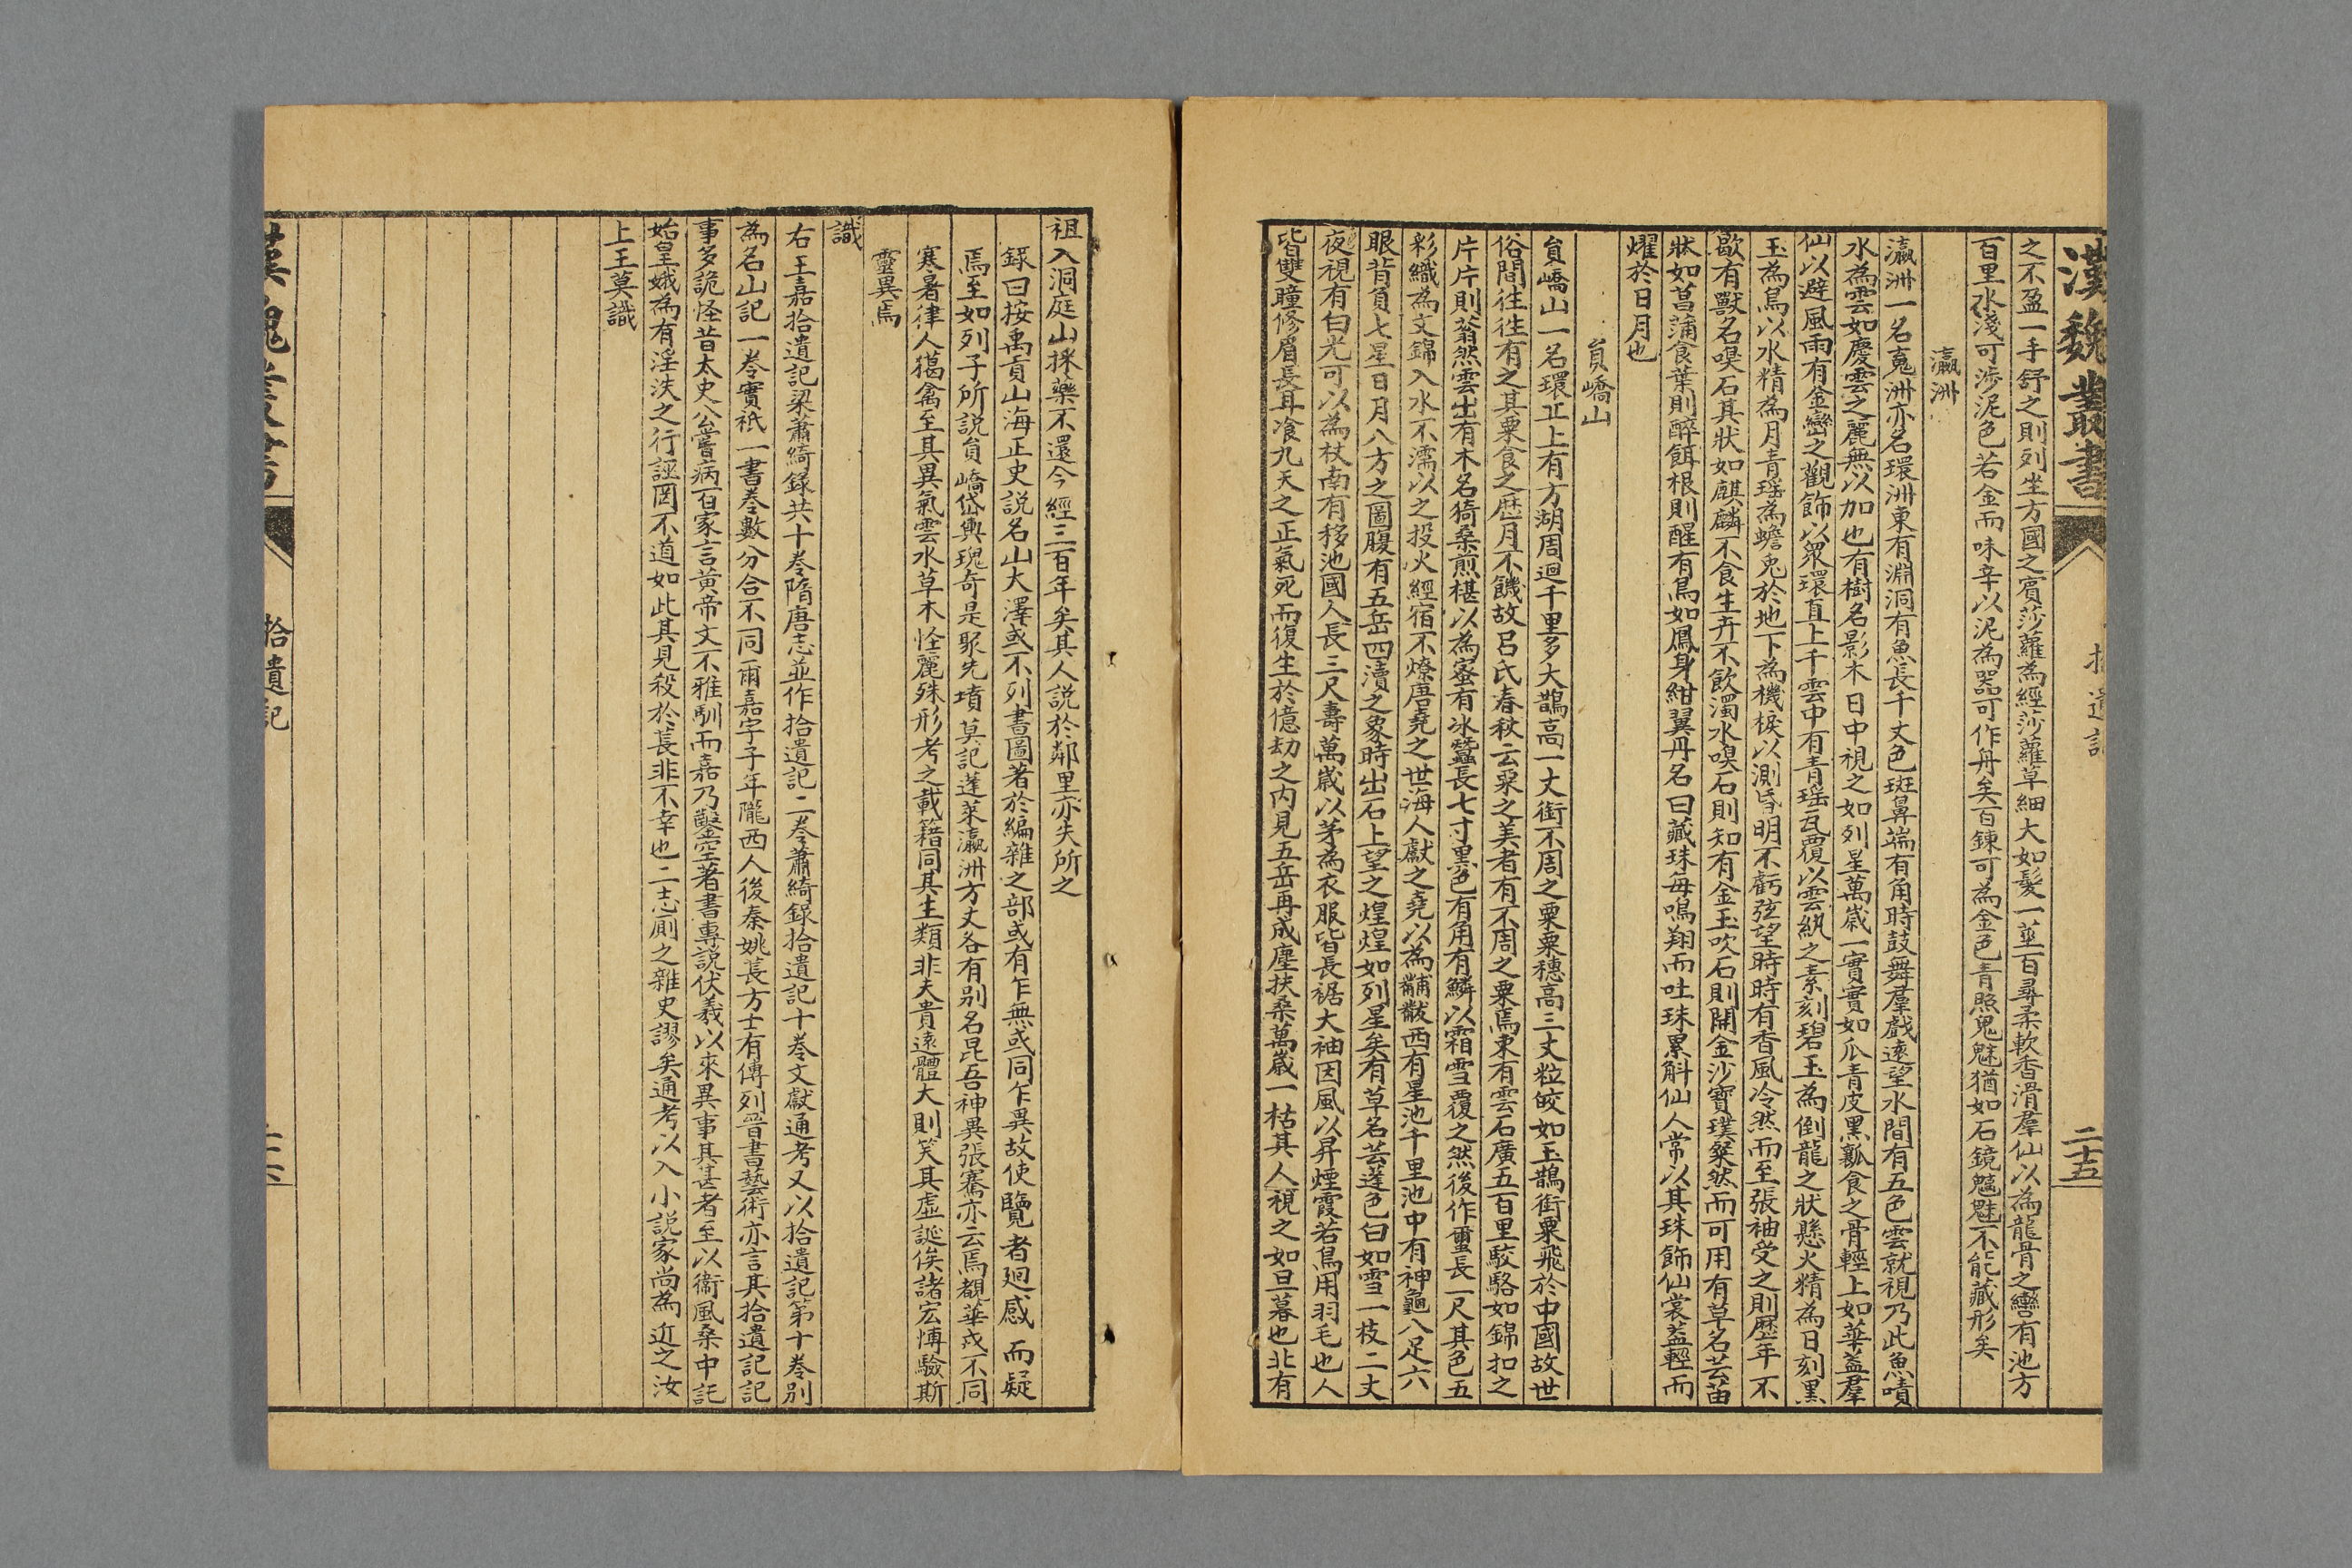 漢魏叢書
拾遺記
二十五
之不盈一手舒之則列坐方國之賓莎蘿為經莎蘿草細大如髮一莖百尋柔軟香滑羣仙以為龍骨之轡有池方
百里水淺可涉泥色若金而味辛以泥為器可作舟矣百鍊可為金色青照鬼魅猶如石鏡魑魅不能藏形矣
瀛洲
瀛洲一名䰟洲亦名環洲東有淵洞有魚長千丈色斑鼻端有角時鼓舞羣戲遠望水間有五色雲就視乃此魚噴
水為雲如慶雲之麗無以加也有樹名影木日中視之如列星萬歲一實實如瓜青皮黑瓤食之骨輕上如華蓋羣
仙以避風雨有金巒之觀飾以眾環直上千雲中有青瑶瓦覆以雲紈之素刻碧玉為倒龍之狀懸火精為日刻黑
玉為烏以水精為月青瑶為蟾兎於地下為機棙以測昏明不虧弦望時時有香風冷然而至張袖受之則歷年不
歇有獸名嗅石其狀如麒麟不食生卉不飲濁水嗅石則知有金玉吹石則開金沙寶璞粲然而可用有草名芸苗
狀如菖蒲食葉則醉餌根則醒有鳥如鳳身紺翼丹名曰藏珠每鳴翔而吐珠累斛仙人常以其珠飾仙裳葢輕而
燿於日月也
負嶠山
負嶠山一名環丘上有方湖周迴千里多大鵲高一丈銜不周之粟粟穗高三丈粒皎如玉鵲銜粟飛於中國故世
俗間往往有之其粟食之歷月不饑故呂氏春秋云粟之美者有不周之粟焉東有雲石廣五百里駮駱如錦扣之
片片則蓊然雲出有木名猗桑煎椹以為蜜有冰蠶長七寸黑色有角有鱗以霜雪覆之然後作蠒長一尺其色五
彩織為文錦入水不濡以之投火經宿不燎唐堯之世海人獻之堯以為黼黻西有星池千里池中有神龜八足六
眼背負七星日月八方之圖腹有五岳四瀆之象時出石上望之煌煌如列星矣有草名芸蓬色白如雪一枝二丈
夜視有白光可以為杖南有移池國人長三尺壽萬歲以茅為衣服皆長裾大袖因風以昇煙霞若鳥用羽毛也人
皆雙瞳修眉長耳飡九天之正氣死而復生於億劫之内見五岳再成塵扶桑萬歲一枯其人視之如旦暮也北有
祖入洞庭山採藥不還今經三百年矣其人說於鄰里亦失所之
錄曰按禹貢山海正史說名山大澤或不列書圖著於編雜之部或有乍無或同乍異故使覽者廻惑而疑
焉至如列子所說負嶠岱輿瑰奇是聚先墳莫記蓬萊瀛洲方丈各有別名昆吾神異張騫亦云焉覩華戎不同
寒暑律人獦禽至其異氣雲水草木怪麗殊形考之載籍同其生類非夫貴遠體大則笑其虛誕俟諸宏博驗斯
靈異焉
識
右王嘉拾遺記梁蕭綺錄共十卷隋唐志並作拾遺記二卷蕭綺錄拾遺記十卷文獻通考又以拾遺記第十卷別
為名山記一卷實衹一書卷數分合不同爾嘉字子年隴西人後秦姚萇方士有傳列晉書藝術亦言其拾遺記記
事多詭怪昔太史公嘗病百家言黃帝文不雅馴而嘉乃鑿空著書專說伏羲以來異事其甚者至以衞風桑中託
始皇娥為有淫泆之行誣罔不道如此其見殺於萇非不幸也二志厠之雜史謬矣通考以入小說家尚為近之汝
上王莫識
漢魏叢書
拾遺記
二十六